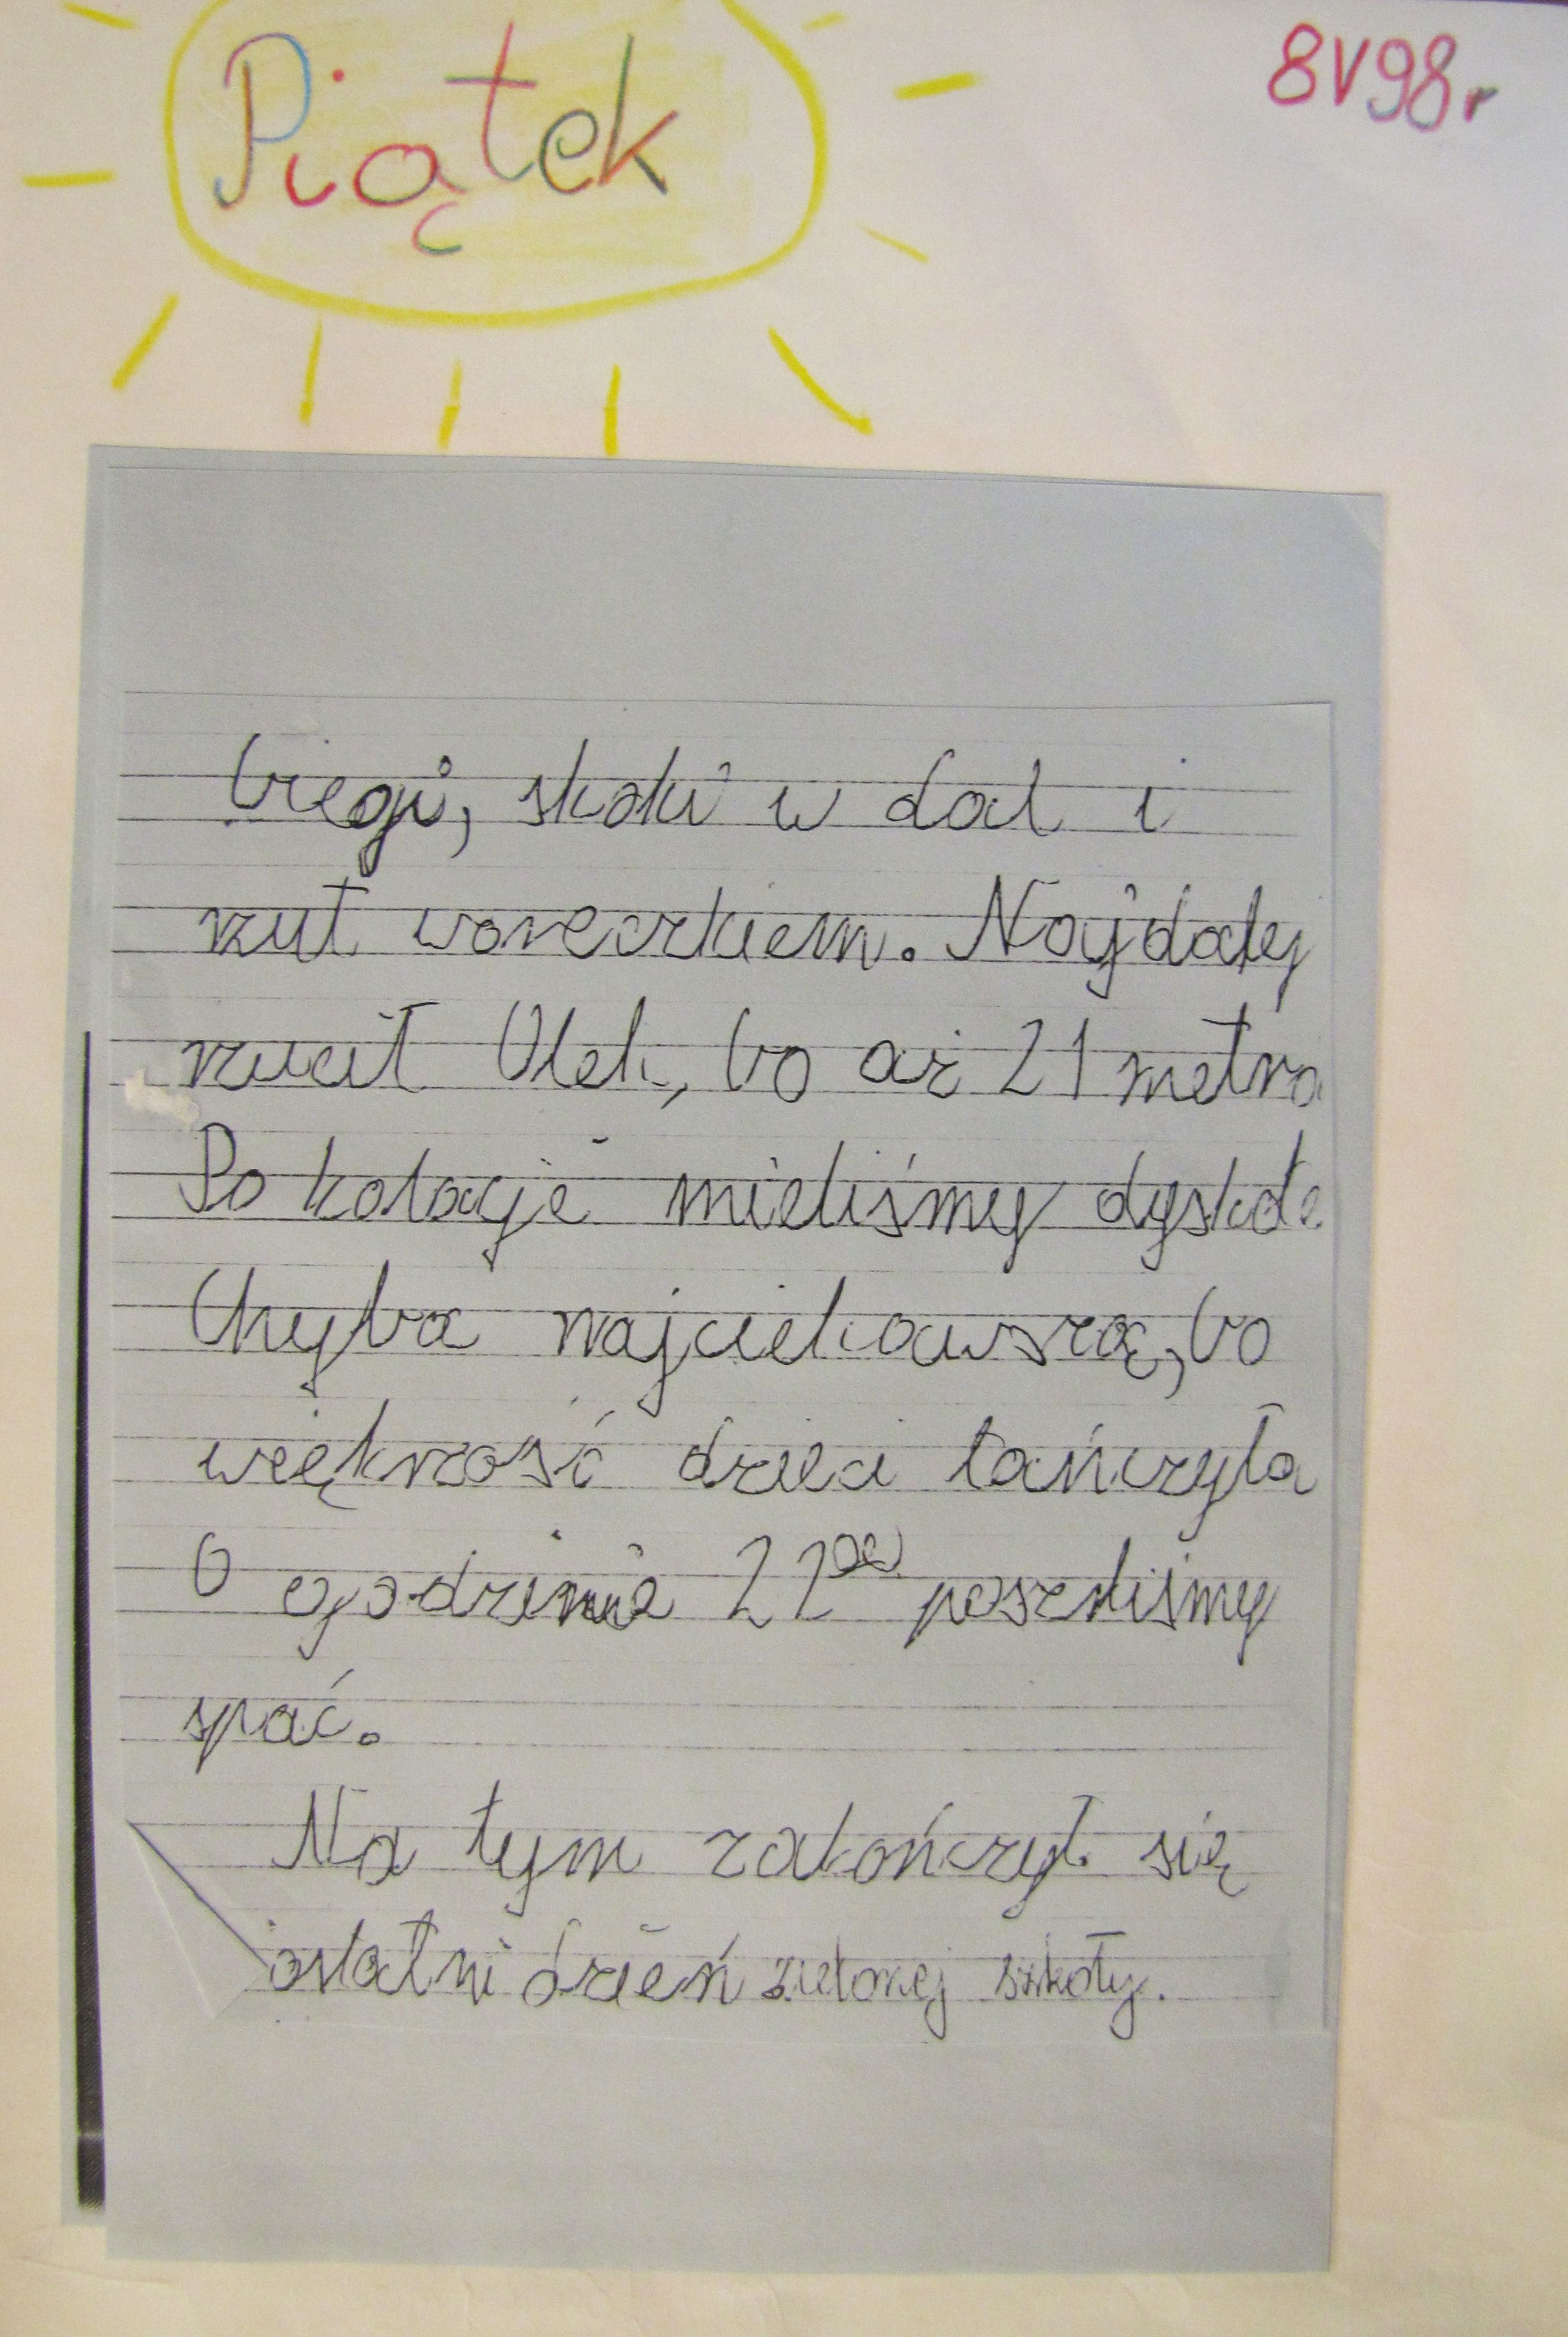 Piątek
8 V 98 r
biegi, skoki w dal i
rzut woreczkiem. Najdalej
rzucił Olek, bo aż 21 metra
Po kolacje mieliśmy dyskote
Chyba najciekawszą, bo
więkrzość dzieci tańczyła
O godzinie 22oo poszliśmy
spać.
Na tym zakończył się
ostatni dzień zielonej szkoły.